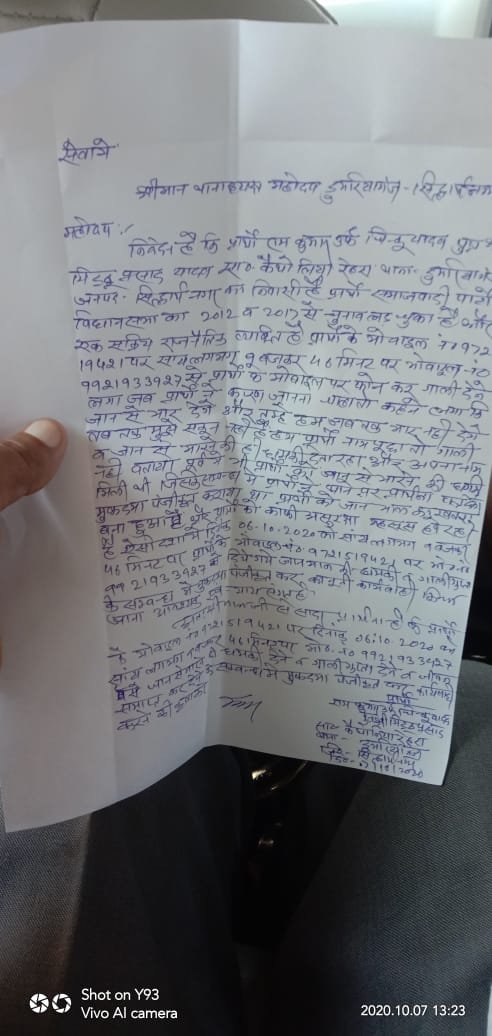 सेवामें
श्रीमान थानाध्यक्ष महोदय डुमरियागंज - सिद्धार्थनगर
महोदय,
निवेदन है कि प्रार्थी राम कुमार उर्फ चिन्कू यादव पुत्र
प्रसाद यादव सा० कैथोलिया रेहरा थाना- डुमरियागंज
जनपद- सिद्धार्थनगर का निवासी है प्रार्थी समाजवादी पार्टी
विधानसभा का 2012 व 2017 से चुनाव लड़ चुका है और
एक सक्रिय राजनैतिक व्यक्ति है प्रार्थी के मोबाइल न० 972
19421 पर सायं लगभग 9 बजकर 46 मिनट पर मोबाइल न०
9921933927 से प्रार्थी के मोबाइल पर फोन कर गाली देने
लगा जब प्रार्थी ने कारण जानना चाहा तो कहने लगा कि
जान से मार देंगे और तुम्हे हम जब तक मार नही देंगे
तब तक मुझे सकून नही है प्रार्थी नाम पूछा तो गाली
व जान से मारने की धमकी देता रहा और अपना नाम
नही बताया पूर्व मे भी प्रार्थी को जान से मारने की धमकी
मिली थी जिसके सम्बन्ध मे प्रार्थी ने थाने पर
मुकदमा पंजीकृत कराया था प्रार्थी को जान माल का खतरा
बना हुआ है और प्रार्थी को काफी असुरक्षा महसूस हो रहा
है ऐसी दशा मे दिनांक 06.10.2020 को सायं लगभग 9 बजकर
46 मिनट पर प्रार्थी के मोबाइल नं० 9721519421 पर मो० न०
9921933927 से दिये गये जान माल की धमकी व गाली गुप्ता
के सम्बन्ध मे मुकदमा पंजीकृत कर कानूनी कार्यवाही किया
जाना आवश्यक एवं न्याय संगत है
श्रीमान जी से सादर प्रार्थना है कि प्रार्थी
के मोबाइल न० 9721519421 पर दिनांक 06.10.2020 को
सायं लगभग 9 बजकर 46 मिनट पर मो० न० 9921933927
से जान से मारने की धमकी देने व गाली गुप्ता देने व
के सम्बन्ध मे मुकदमा पंजीकृत कर कार्यवाही
करने की कृपा
प्रार्थी
राम कुमार उर्फ चिन्कू यादव
सा० कैथोलिया रेहरा
थाना- डुमरियागंज
जि०- सिद्धार्थनगर
दि०- 07/10/2020
Shot on Y93
Vivo AI camera
2020.10.07 13:23